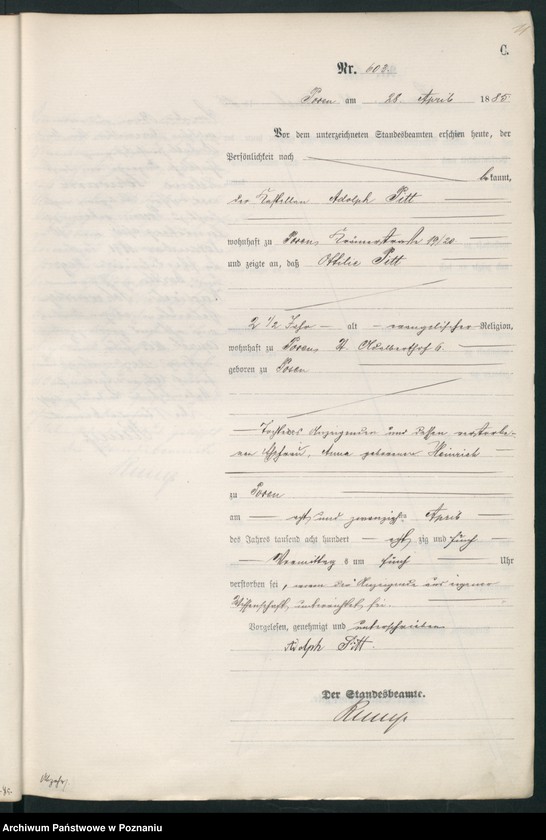 C.
Nr. 602
Posen am 28. April 1885
Vor dem unterzeichneten Standesbeamten erschien heute, der
Persönlichkeit nach
bekannt,
der Kastellan Adolph Pitt
wohnhaft zu Posen, Krämerstraße 19/20
und zeigte an, daß Ottilie Pitt
2 1/2 Jahr alt evangelischer Religion,
wohnhaft zu Posen, St. Adalberthof 6.
geboren zu Posen
Tochter des Anzeigenden und dessen verstorbe-
nen Ehefrau, Anna geborenen Heinrich
zu Posen
am acht und zwanzigsten April
des Jahres tausend acht hundert achtzig und fünf
Vormittags um fünf Uhr
verstorben sei, wovon der Anzeigende aus eigener
Wissenschaft unterrichtet sei.
Vorgelesen, genehmigt und unterschrieben
Adolph Pitt.
Der Standesbeamte.
Archiwum Państwowe w Poznaniu